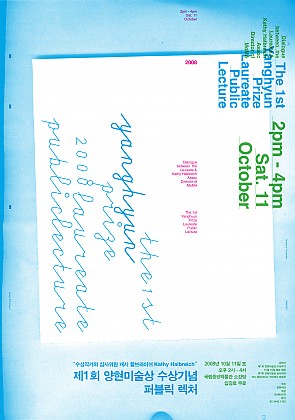 2pm - 4pm
Sat. 11
October
Dialogue
between the
Laureate &
Kathy Halbreich
The 1st
Yanghyun
Prize
Laureate
Public
Lecture
2pm - 4pm
Sat. 11
October
2008
the 1st
yanghyun
prize
2008 laureate
public lecture
Dialogue
between the
Laureate &
Kathy Halbreich
Assoc
Director of
MoMA
The 1st
Yanghyun
Prize
Laureate
Public
Lecture
"수상작가와 심사위원 캐시 할브라이쉬 Kathy Halbreich"
제1회 양현미술상 수상기념
퍼블릭 렉처
2008년 10월 11일 토
오후 2시 - 4시
국립중앙박물관 소강당
입장료 무료